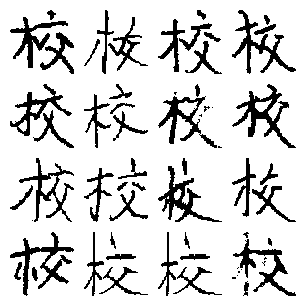 校校校校
校校校校
校校校校
校校校校